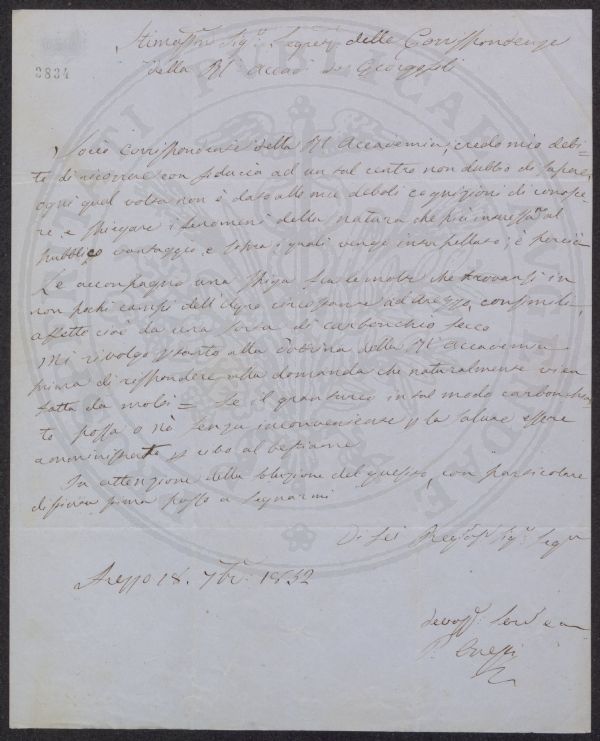 Stimatissmo Sigr. Segreto delle Corrispondenze
della Rl Accad de Georgofili
3834
Socio corrispondente della Rl Accademia, credo mio debi-
to di ricorrere con fiducia ad un tal centro non dubbo di sapere,
ogni qual volta non è dato alle mie deboli cognizioni di conosce
re, e spiegare i fenomeni della natura che più interessno al
pubblico vantaggio, e sopra i quali venga interpellato; è perciò
Le accompagno una spiga fra le molte che trovansi in
non pochi campi dell'Agro circostante ad Arezzo, consimile,
affetto cioè da una sorta di carbonchio secco
Mi rivolgo pertanto alla dottrina della Rl Accademia
prima di rispondere alla domanda che naturalmente viene
fatta da molti = Se il granturco in tal modo carbonchia
to possa o nò senza inconveniente p la salute essere
amministrato p cibo al bestiame
In attenzione della soluzione del quesito, con particolare
distima passo a segnarmi
Di Lei Sigr. Segr
Arezzo 18. 7bre 1852
devoss. Serv